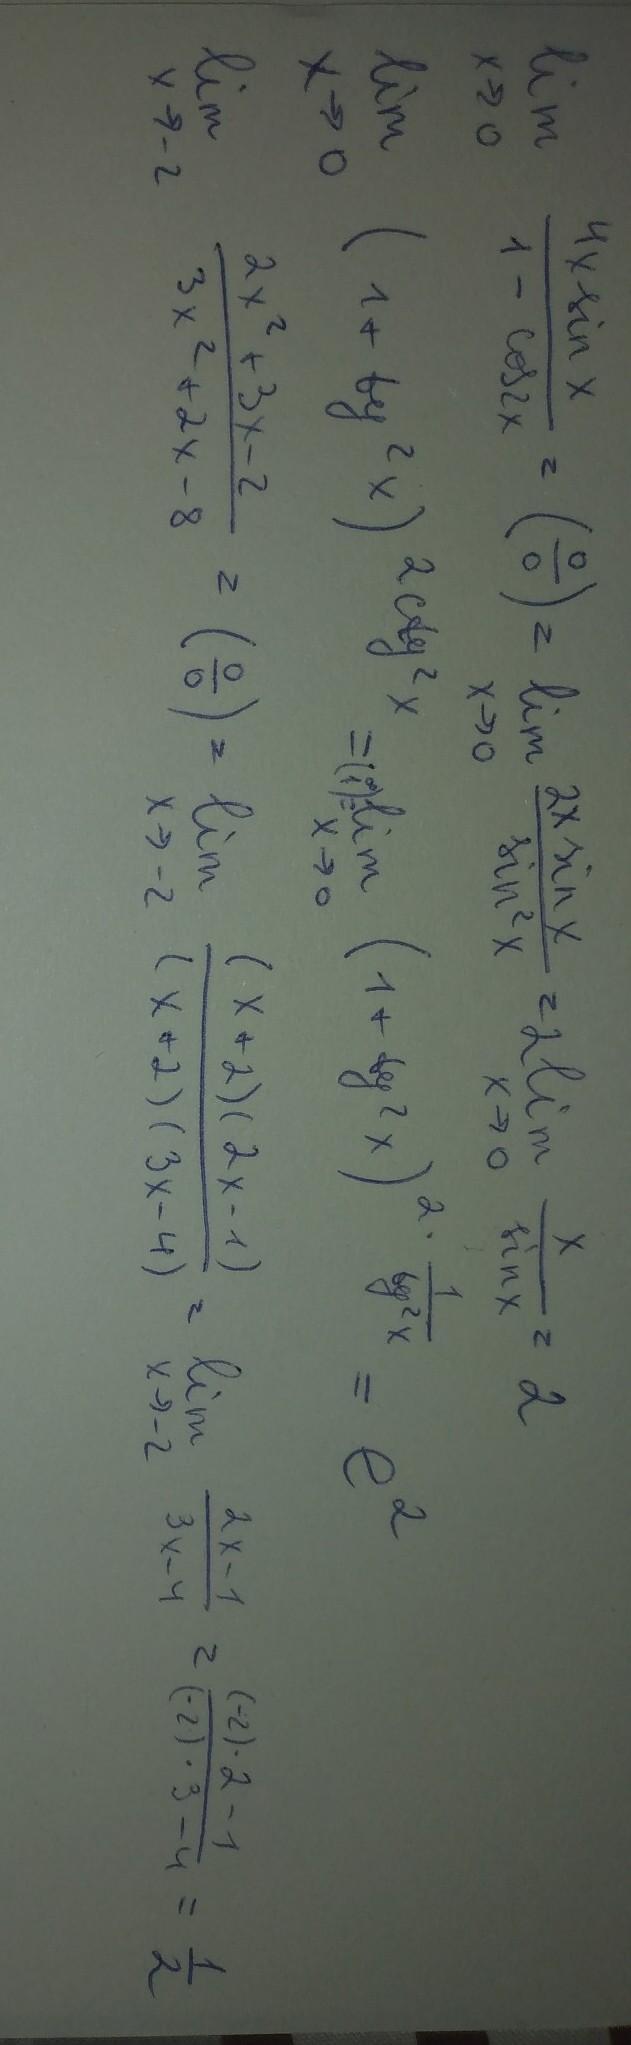 lim x→0 4x sin x / 1 - cos2x = (0/0) = lim x→0 2x sin x / sin²x = 2 lim x→0 x / sin x = 2
lim x→0 (1 + tg²x)^2ctg²x = (1^∞) = lim x→0 (1 + tg²x)^2 · 1/tg²x = e²
lim x→-2 2x² + 3x - 2 / 3x² + 2x - 8 = (0/0) = lim x→-2 (x+2)(2x-1) / (x+2)(3x-4) = lim x→-2 2x-1 / 3x-4 = (-2)·2-1 / (-2)·3-4 = 1/2